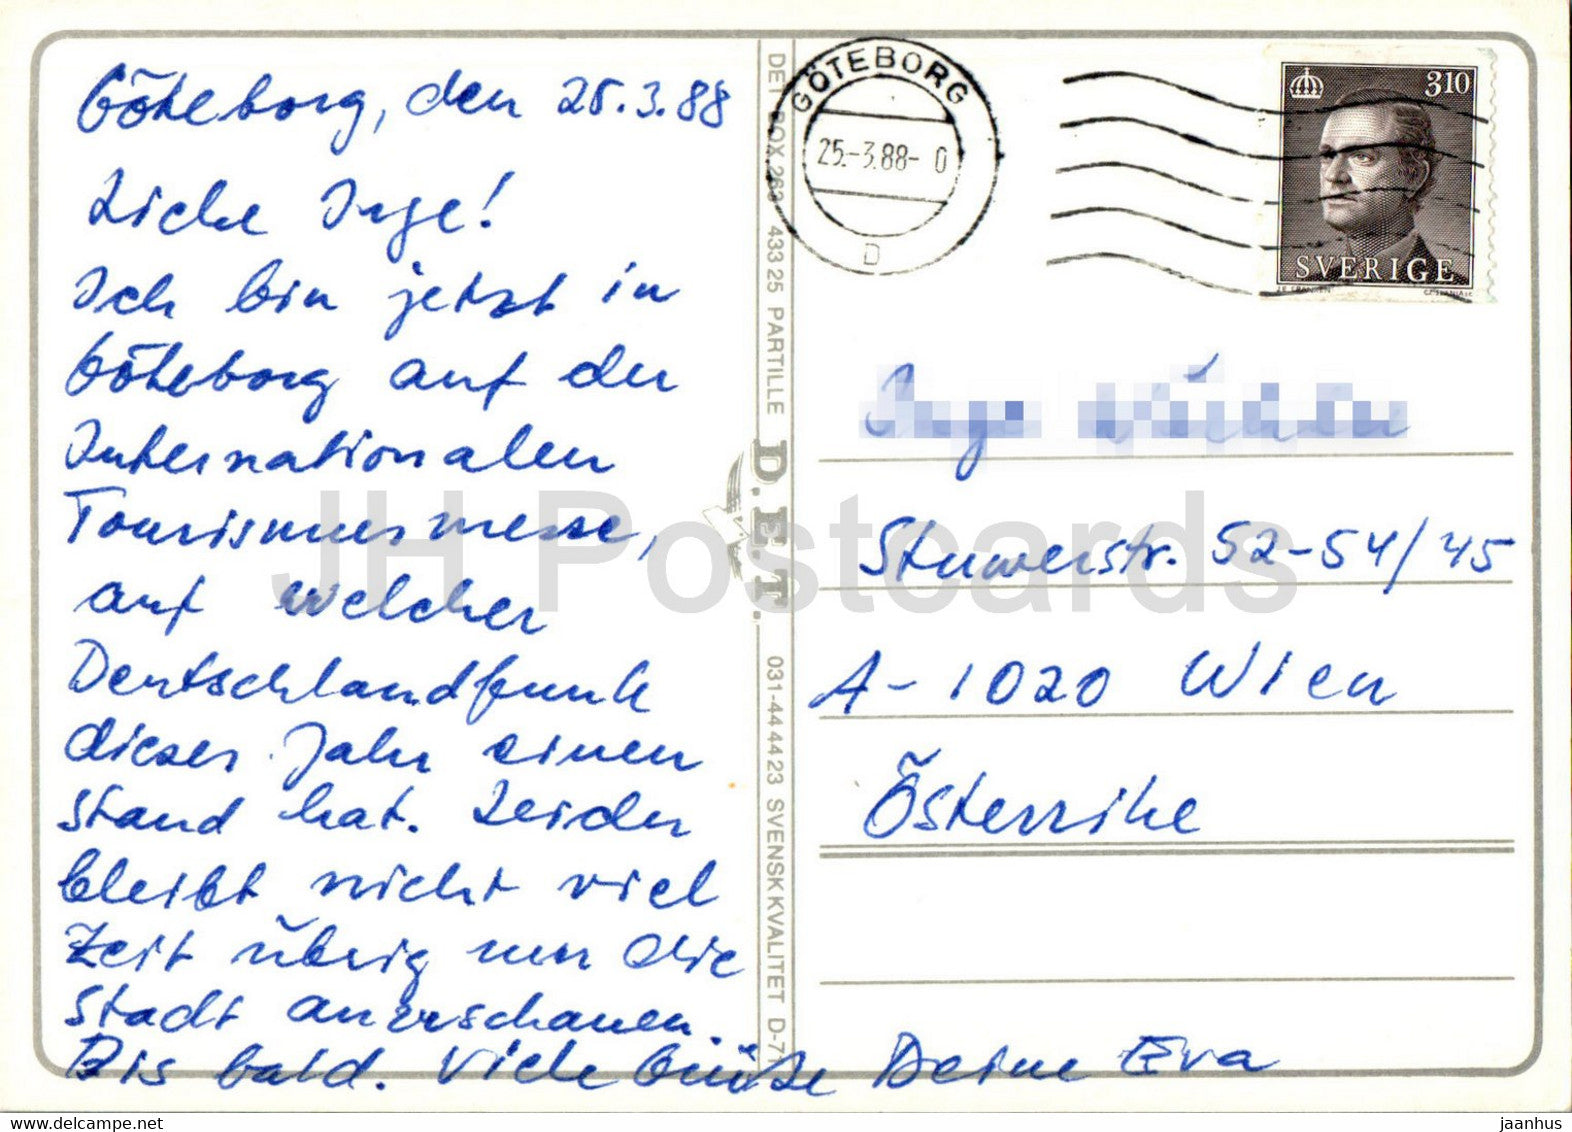 Göteborg, den 25.3.88
Liebe Inge!
Ich bin jetzt in
Göteborg auf der
Internationalen
Tourismusmesse,
auf welcher
Deutschlandfunk
dieses Jahr einen
Stand hat. Leider
bleibt nicht viel
Zeit übrig um die
Stadt anzuschauen.
Bis bald. Viele Grüße Deine Eva
DET BOX 263 433 25 PARTILLE
D.E.T.
031-44 44 23 SVENSK KVALITET D-71
GÖTEBORG
25.-3.88- 0
D
310
SVERIGE
Inge
Stuwerstr. 52-54/45
A-1020 Wien
Österrike
JH Postcards
delcampe.net
jaanhus